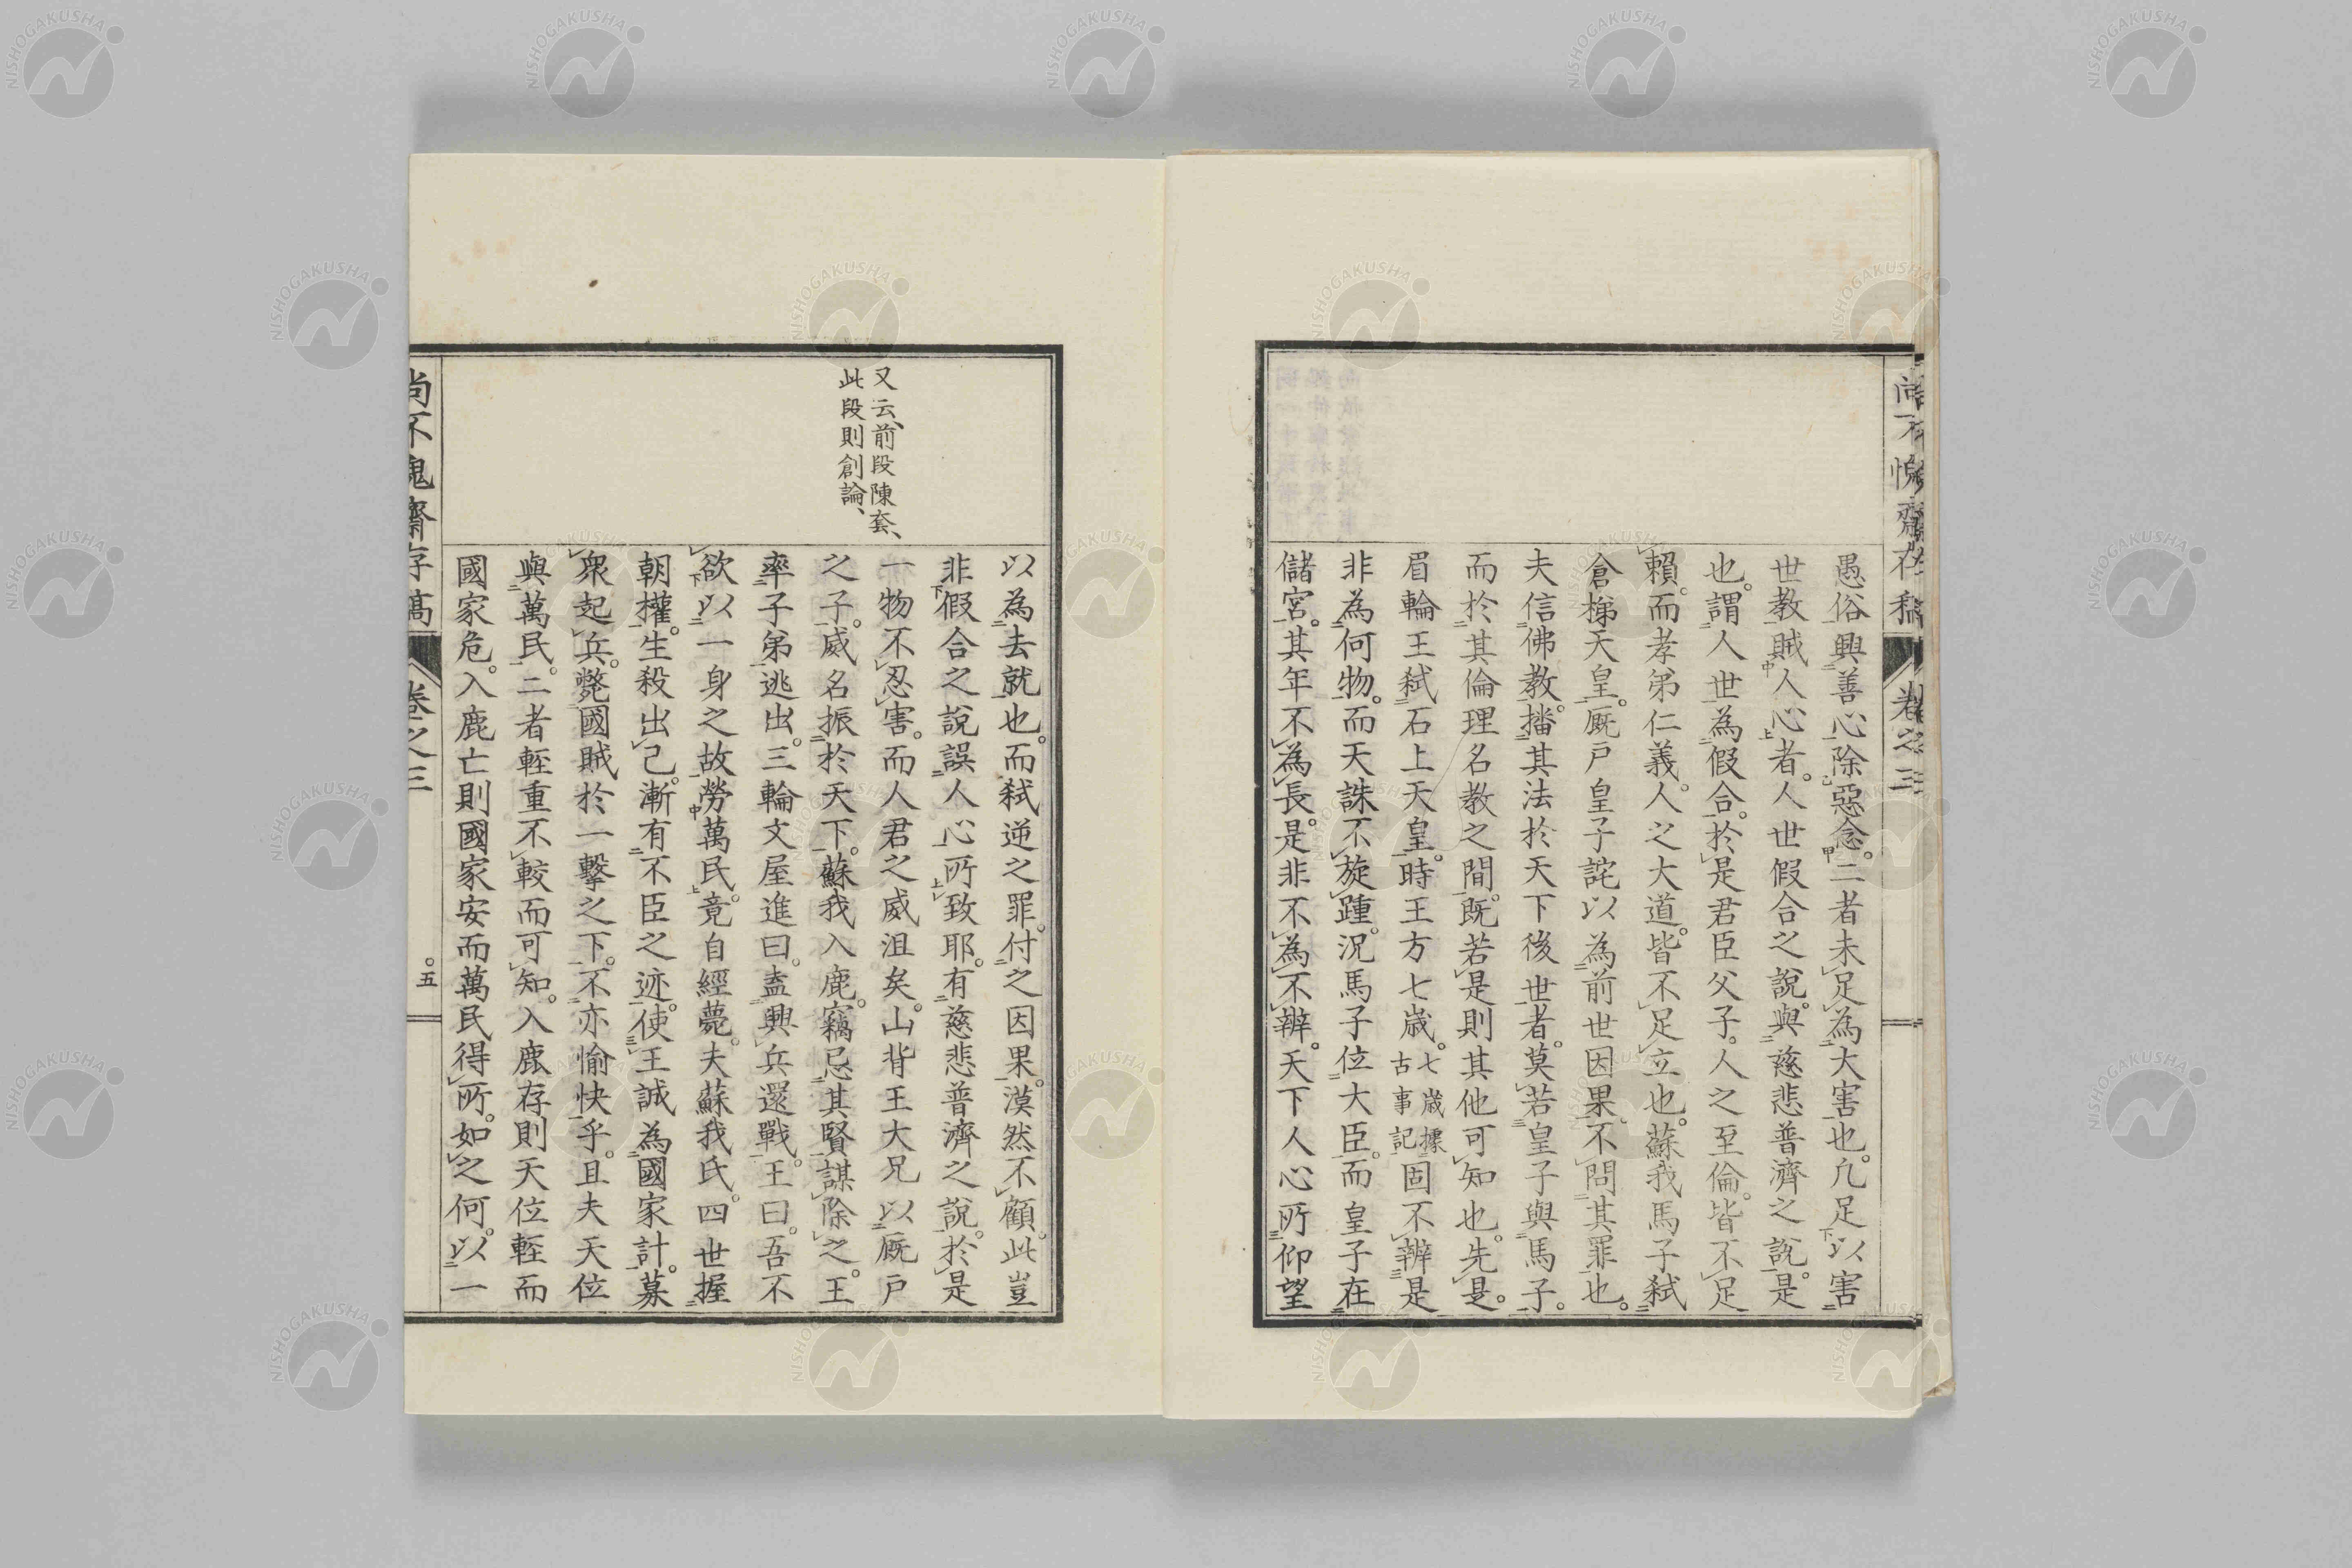 尚不愧齋存稿 卷之三
愚俗興善心除惡念。二者未足為大害也。凡足以害
世教賊人心者。人世假合之說。與慈悲普濟之說。是
也。謂人世為假合。於是君臣父子。人之至倫。皆不足
賴。而孝弟仁義。人之大道。皆不足立也。蘇我馬子弒
倉梯天皇。厩戸皇子詫以為前世因果。不問其罪也。
夫信佛教。播其法於天下後世者。莫若皇子與馬子。
而於其倫理名教之間。既若是則其他可知也。先是。
眉輪王弒石上天皇。時王方七歲。七歲據古事記固不辨是
非為何物。而天誅不旋踵。況馬子位大臣。而皇子在
儲宮。其年不為長。是非不為不辨。天下人心所仰望
又云、前段陳套、
此段則創論、
以為去就也。而弒逆之罪。付之因果。漠然不顧。此豈
非假合之說誤人心所致耶。有慈悲普濟之說。於是
一物不忍害。而人君之威沮矣。山背王大兄以厩戸
之子。威名振於天下。蘇我入鹿。竊忌其賢謀除之。王
率子弟逃出。三輪文屋進曰。盍興兵還戰。王曰。吾不
欲以一身之故勞萬民。竟自經薨。夫蘇我氏。四世握
朝權。生殺出己。漸有不臣之迹。使王誠為國家計。募
衆起兵。斃國賊於一擊之下。不亦愉快乎。且夫天位
與萬民。二者輕重不較而可知。入鹿存則天位輕而
國家危。入鹿亡則國家安而萬民得所。如之何。以一
尚不愧齋存稿 卷之三 。五
NISHOGAKUSHA